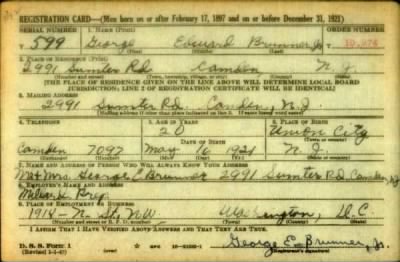 REGISTRATION CARD—(Men born on or after February 17, 1897 and on or before December 31, 1921)
SERIAL NUMBER 1. NAME (Print) ORDER NUMBER
T 599 George Edward Brunner, Jr. 10,976
(First) (Middle) (Last)
2. PLACE OF RESIDENCE (Print)
2991 Sumter Rd. Camden N. J.
(Number and street) (Town, township, village, or city) (County) (State)
[THE PLACE OF RESIDENCE GIVEN ON THE LINE ABOVE WILL DETERMINE LOCAL BOARD
JURISDICTION; LINE 2 OF REGISTRATION CERTIFICATE WILL BE IDENTICAL]
3. MAILING ADDRESS
2991 Sumter Rd. Camden, N.J.
4. TELEPHONE 5. AGE IN YEARS 6. PLACE OF BIRTH
20 Union City
DATE OF BIRTH
Camden 7097 May 16 1921 N. J.
7. NAME AND ADDRESS OF PERSON WHO WILL ALWAYS KNOW YOUR ADDRESS
Mr & Mrs. George E Brunner 2991 Sumter Rd, Camden, NJ
8. EMPLOYER'S NAME AND ADDRESS
9. PLACE OF EMPLOYMENT OR BUSINESS
1918 - N St, N.W. Washington, D. C
(Number and street or R. F. D. number) (Town) (County) (State)
I AFFIRM THAT I HAVE VERIFIED ABOVE ANSWERS AND THAT THEY ARE TRUE.
D. S. S. Form 1 George E. Brunner, Jr.